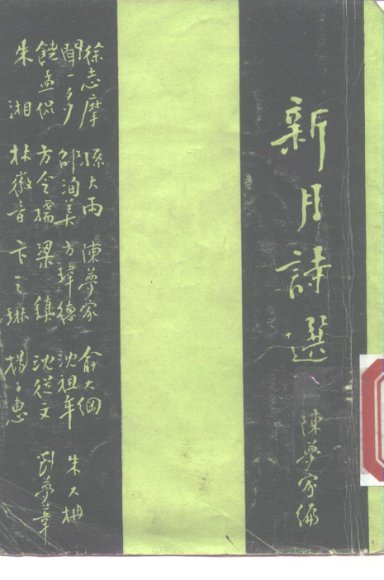 新月詩選
陳夢家編
徐志摩 孫大雨 陳夢家 俞大綱 朱大枬
聞一多 邵洵美 方瑋德 沈祖牟 劉夢葦
饒孟侃 方令孺 梁鎮 沈從文
朱湘 林徽音 卞之琳 楊子惠